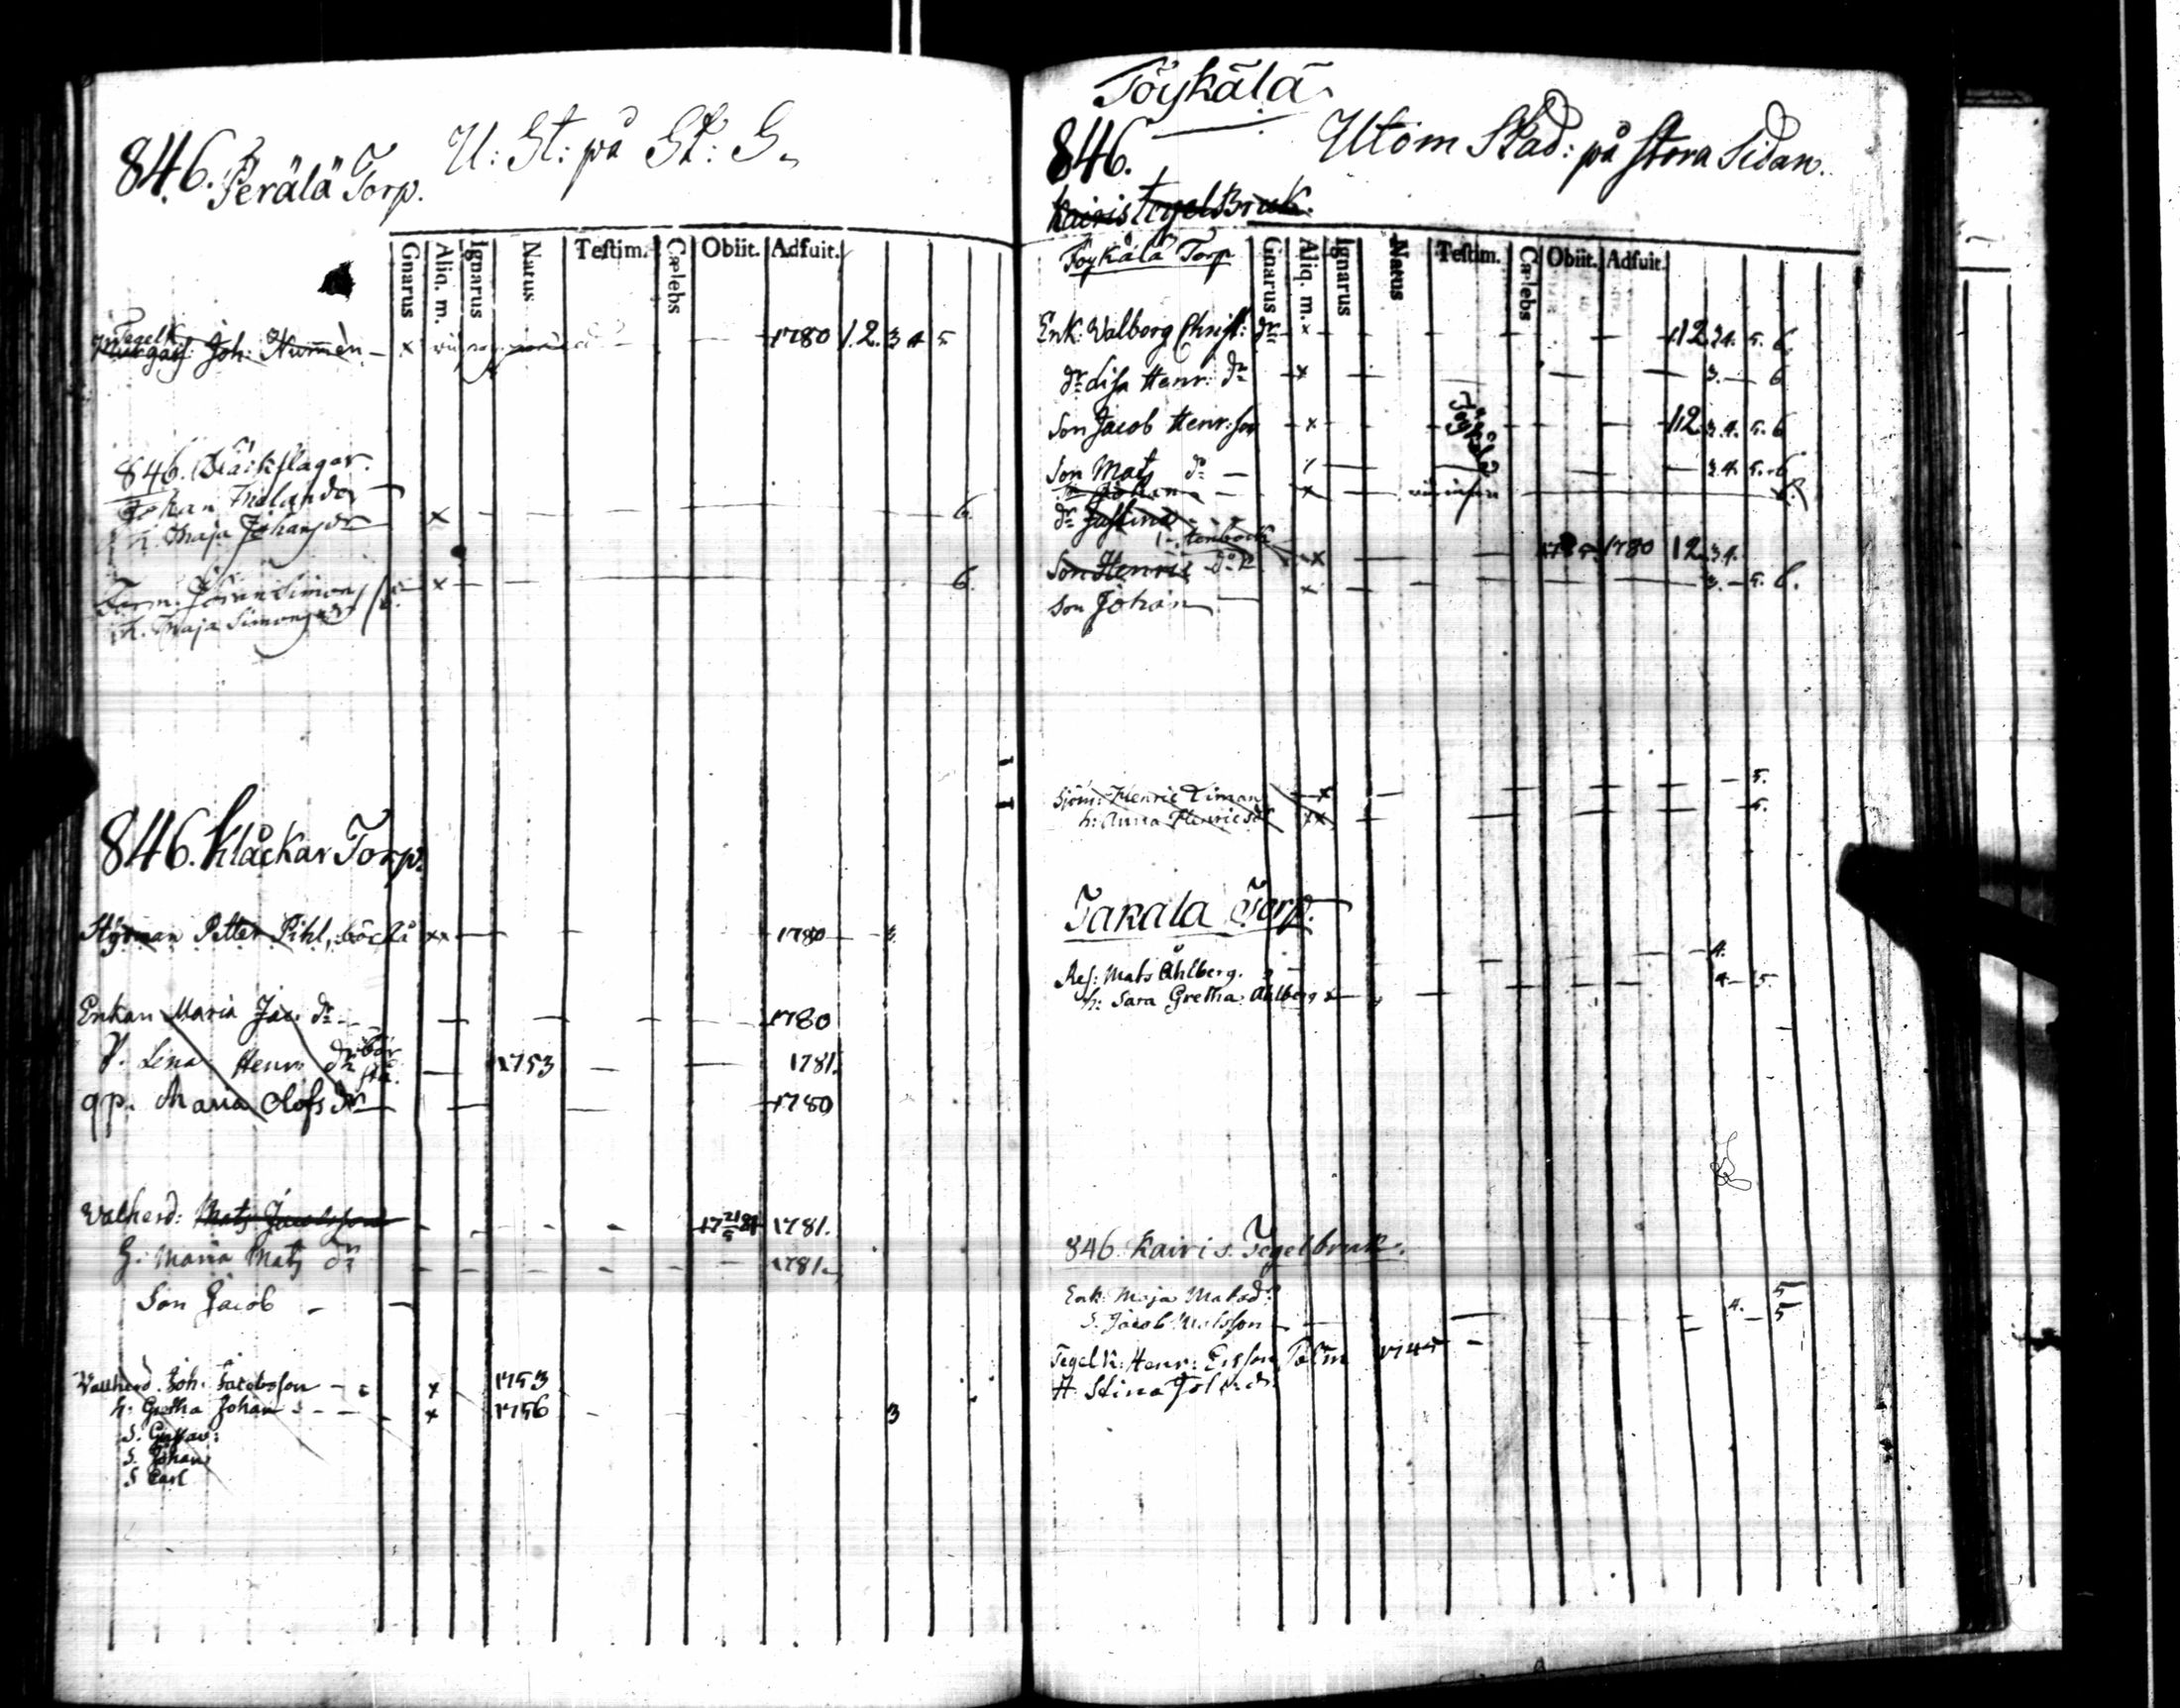 846. Perälä Torp. U: St: på St: S.
Gnarus Aliq. m. Ignarus Natus Testim. Cælebs Obiit. Adfuit.
Tegelk
Joh: Numèn - x 1780 1. 2. 3 4 5
846. Bäckslagar.
Johan Melander
h. Maja Johansdr x 6.
Simons x 6.
h. Maja Simonsdr
846. Klåckar Torp.
Styrman Petter Pihl, xx 1780 3.
Enkan Maria Jac: dr 1780
P. Lena Henr: dr 1753 1781.
qp. Maria Olofs dr 1780
Walherd: Mats Jacobsson 17 21/5 81 1781.
H: Maria Mats dr 1781.
Son Jacob
Wallherd. Joh. Jacobsson x 1753
h: Gretha Johan x 1756 3
S. Gustav:
S. Johan
S Carl
Töykälä
846. Utom Stad: på stora Sidan.
Kairis tegelBruk.
Töykälä Torp
Gnarus Aliq. m. Ignarus Natus Testim. Cælebs Obiit. Adfuit.
Enk: Walborg Christ: dr x 1 2. 3 4. 5. 6.
dr Lisa Henr: dr x 3. 6
Son Jacob Henr:son x 1 2. 3. 4. 5. 6
Son Mats do 3. 4. 5. 6
Johan x
dr Justina
Son Henric do x 1780 1 2. 3 4.
Son Johan x 3. 5. 6.
Sjöm: Henric Timan x 5.
h: Anna Henricsdr xx 5.
Takala Torp.
Ref: Mats Ahlberg. 4.
h: Sara Gretha Ahlberg x 4 5.
846. Kairis. Tegelbruk.
Enk: Maja Matsdr 5
S. Jacob Matsson 4. 5
Tegelk: Henr: Ersson 1745
H. Stina